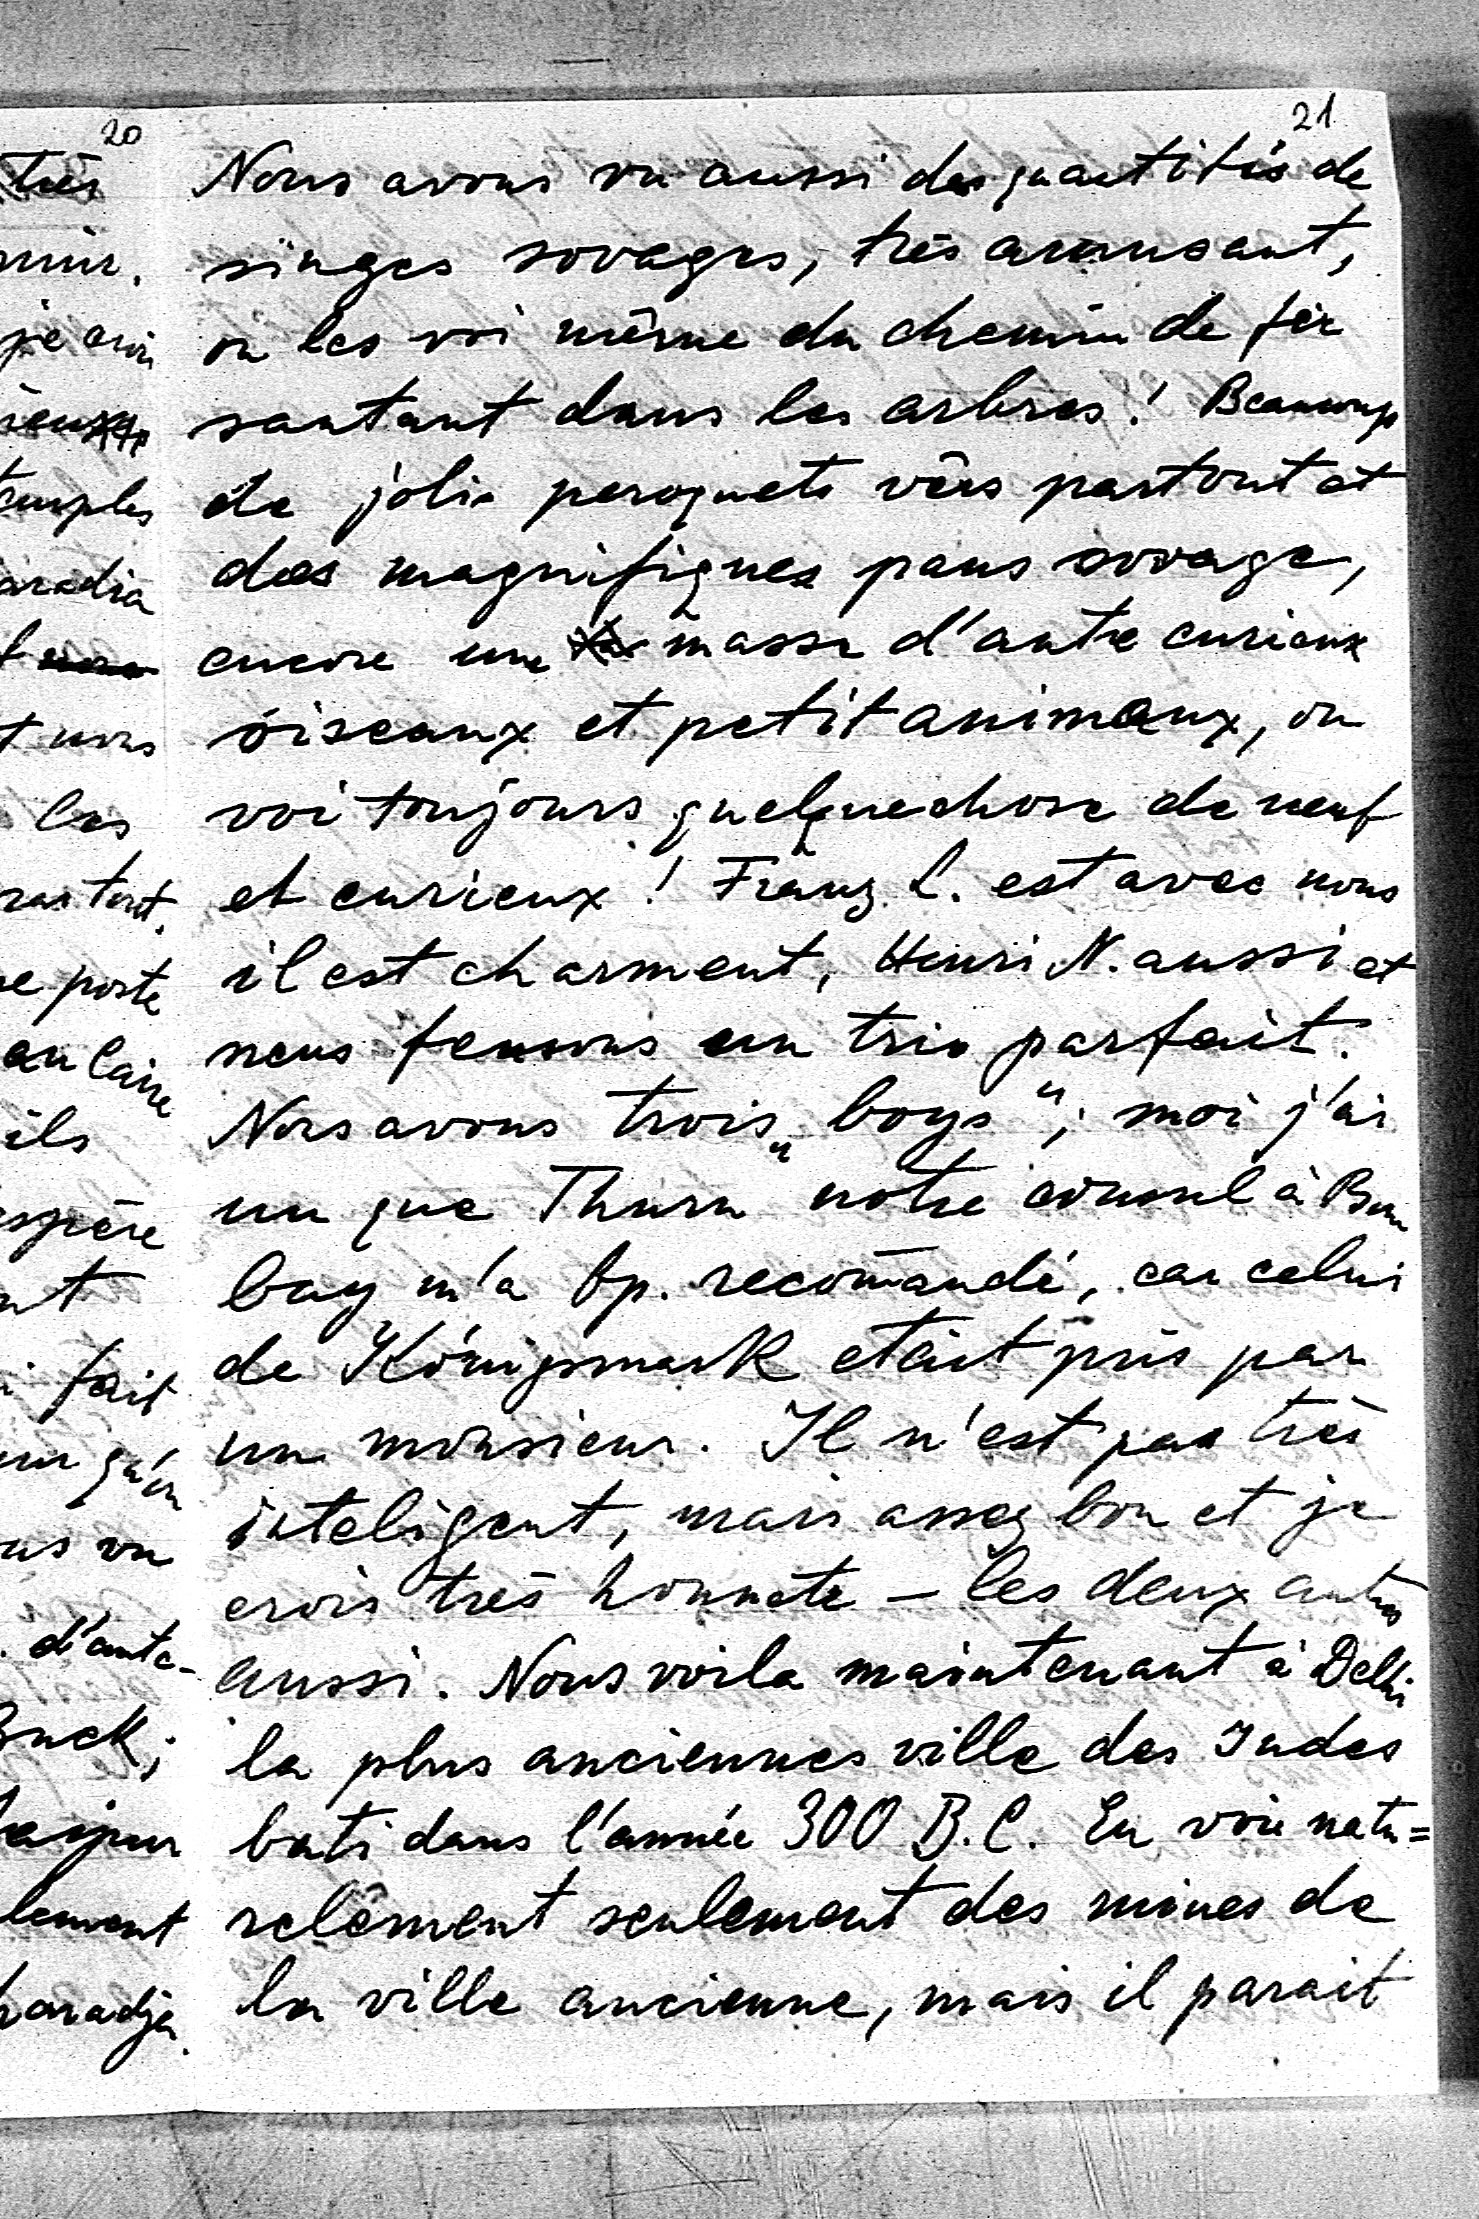 20
très
je crois
temples
t nous
les
ne porte
ils
espère
fait
qu'on
d'autc-
Buck;
21
Nous avons vu aussi des quantités de
singes sovages, très amusant,
on les voi même du chemin de fèr
sautant dans les arbres! Beaucoup
de jolis peroquets vêrs partout et
des magnifiques paus sovage,
encore une masse d'autre curieux
oiseaux et petit animaux, on
voi toujours quelquechose de neuf
et curieux! Franz L. est avec nous
il est charment, Henri N. aussi et
nous femons un trio parfait.
Nous avons trois „boys“; moi j'ai
un que Thurn notre consul à Bom
bay m'a fp. recom̄andé, car celui
de Königsmark etait pris par
un monsieur. Il n'est pas très
inteligent, mais assez bon et je
crois très honnete – les deux autres
aussi. Nous voila maintenant à Delhi
la plus anciennes ville des Indes
bati dans l'année 300 B.C. En voie natu=
relement seulement des ruines de
la ville ancienne, mais il parait